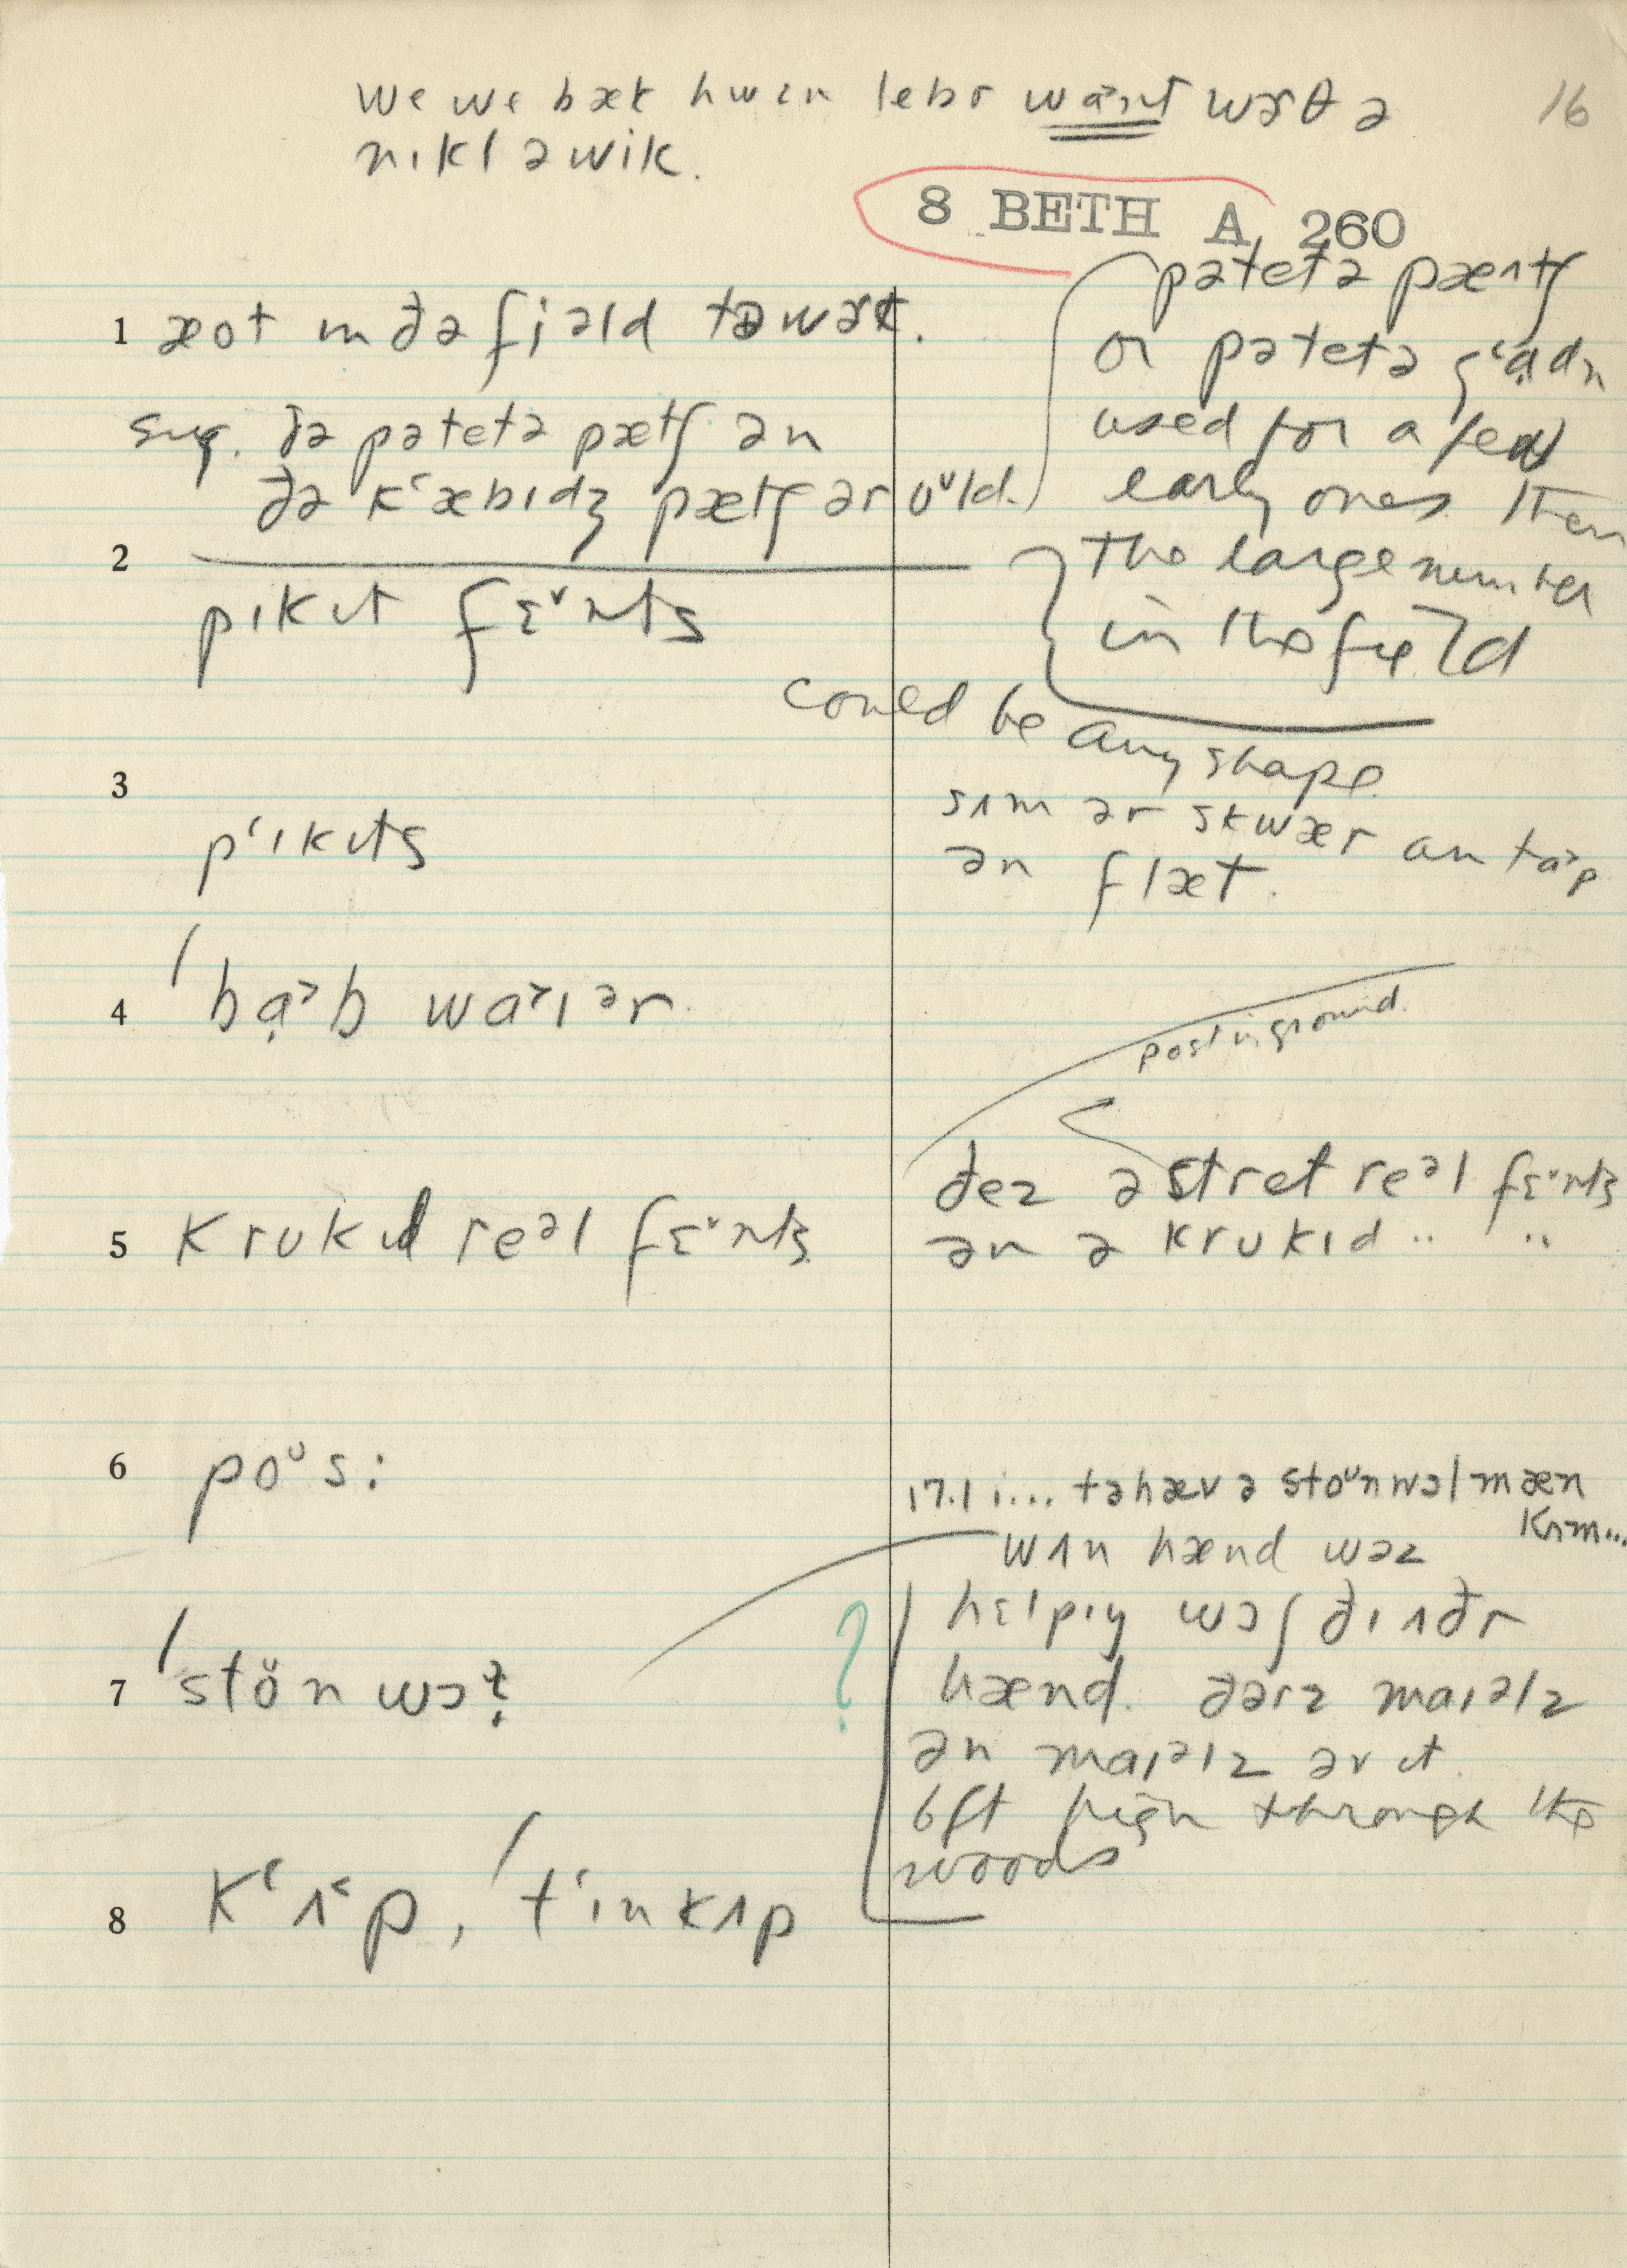 we we bæk hwɛn lebɚ wɑ˃nt wɝθ ə
nɪkl ə wik.
16
8 BETH A 260
1 æot ɪn ðə fiəld tə wɝk.
sug. ðə pətetə pætʃ ən
ðə kʻæbɪdʒ pætʃ ər oᵘld.
pətetə pæᵋtʃ
or pətetə gʻɑdn
used for a few
early ones then
the large number
in the field
2
pɪkɪt fɛᵛnts
could be any shape
3
pʻɪkɪts
sʌm ər skwær ɑn tɑ˃p
ən flæt.
4 ˈbɑ˃b wɑ˃ɪər
post in ground.
5 krukɪd reᵊl fɛᵛnts
ðez ə stret reᵊl fɛᵛnts
ən ə krukɪd " "
6 poᵘs:
17.1 i... tə hæv ə stoᵘn wɔl mæn
kʌm...
wʌn hænd wəz
7 ˈstön wɔɫ
?
hɛlpɪŋ wɔʃ ðɪ ʌðr
hænd. ðərz maɪəlz
ən maɪəlz əv ɪt.
6ft high through the
woods
8 kʻʌ˂p, ˈtʻɪnkʌp